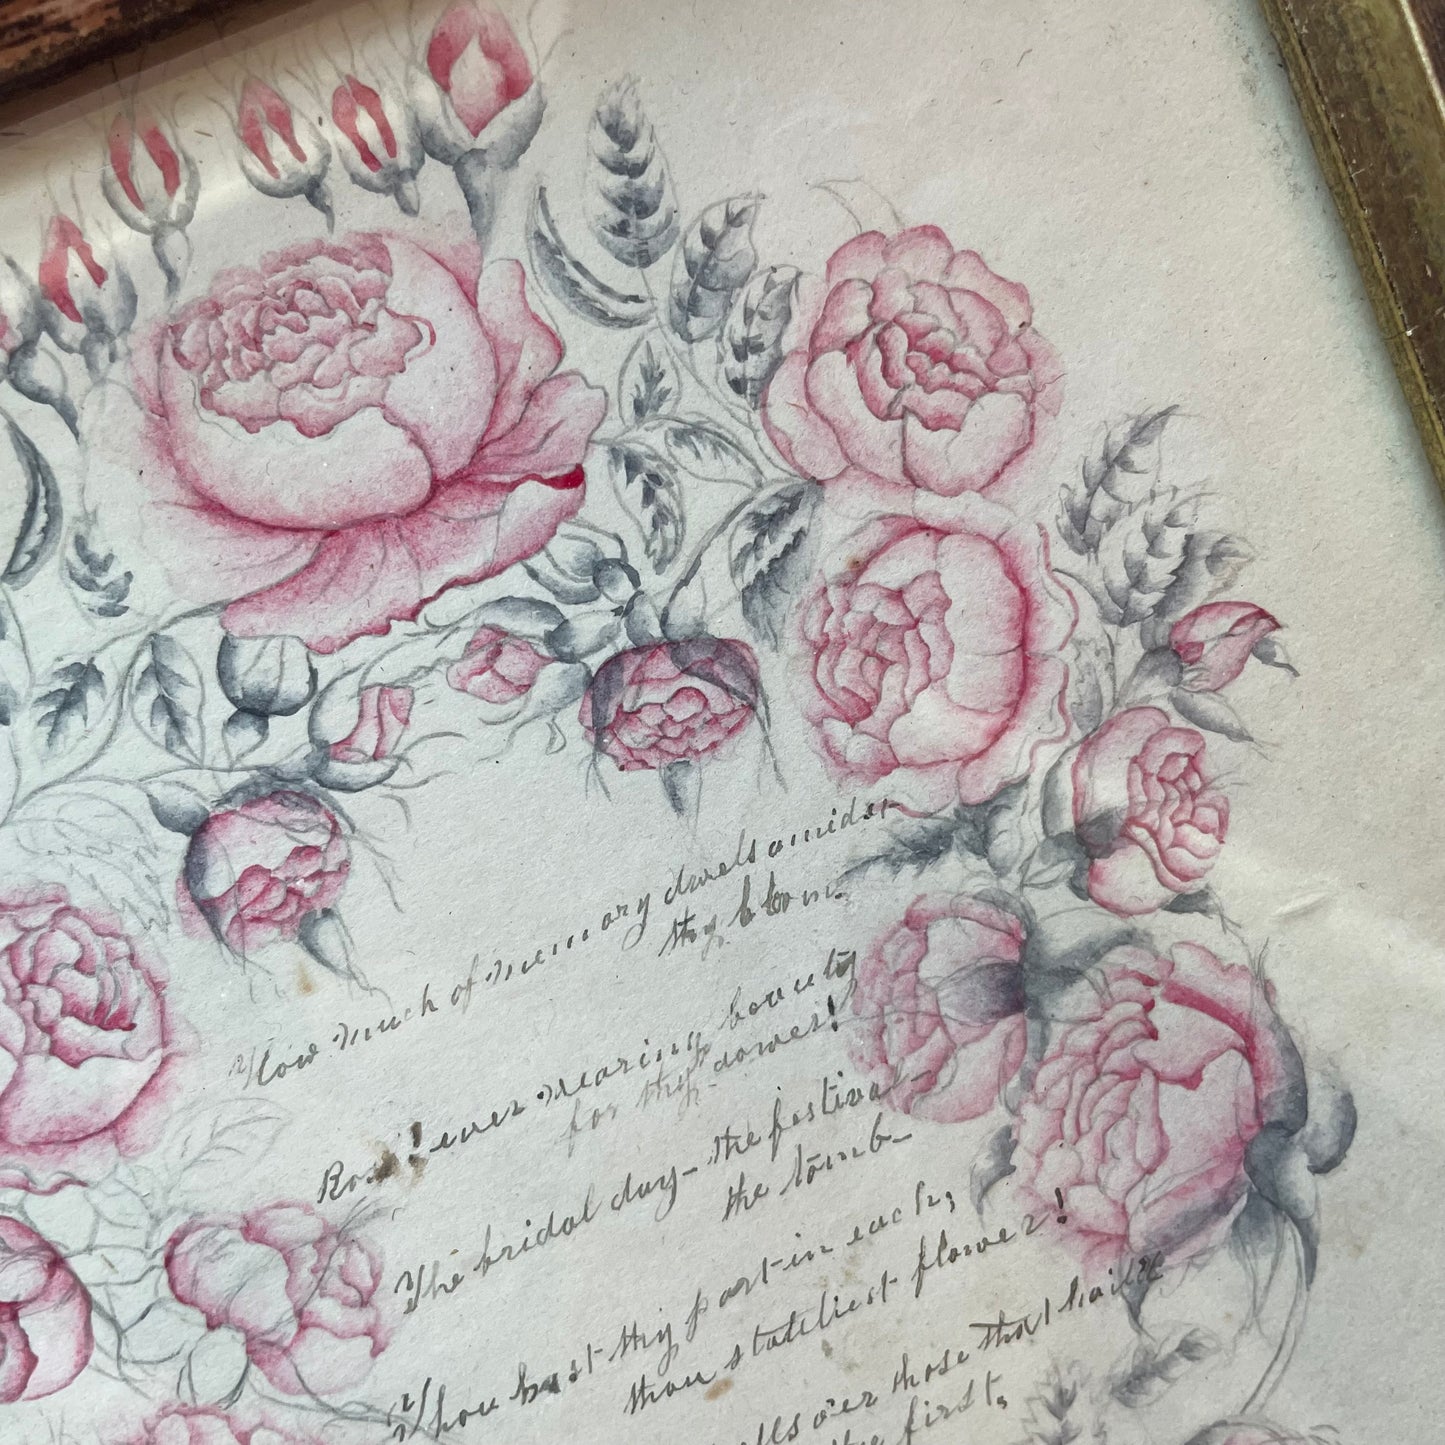 How much of memory dwells amidst
thy bloom,
Rose! ever wearing beauty
for thy dower!
The bridal day– the festival–
the tomb–
Thou hast thy part in each,
thou stateliest flower!
o'er those that
the first,